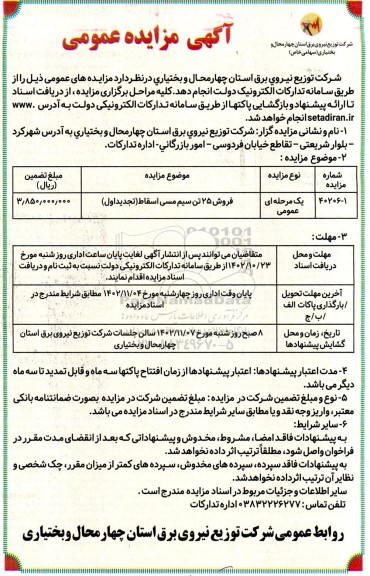 شرکت توزیع نیروی برق استان چهارمحال و
بختیاری (سهامی خاص)
آگهی مزایده عمومی
شرکت توزیع نیروی برق استان چهارمحال و بختیاری درنظر دارد مزایده های عمومی ذیل را از
طریق سامانه تدارکات الکترونیک دولت انجام دهد. کلیه مراحل برگزاری مزایده ، از دریافت اسناد
تا ارائه پیشنهاد و بازگشایی پاکتها از طریق سامانه تدارکات الکترونیکی دولت به آدرس www.
setadiran.ir انجام خواهد شد.
۱- نام و نشانی مزایده گزار: شرکت توزیع نیروی برق استان چهارمحال و بختیاری به آدرس شهرکرد
- بلوار شریعتی - تقاطع خیابان فردوسی - امور بازرگانی- اداره تدارکات.
۲- موضوع مزایده :
شماره مزایده	نوع مزایده	موضوع مزایده	مبلغ تضمین (ریال)
۴۰۲۰۶-۱	یک مرحله ای عمومی	فروش ۲۵ تن سیم مسی اسقاط (تجدید اول)	۳٫۸۵۰٫۰۰۰٫۰۰۰
۳- مهلت:
مهلت و محل دریافت اسناد	متقاضیان می توانند پس از انتشار آگهی لغایت پایان ساعت اداری روز شنبه مورخ ۱۴۰۲/۱۰/۲۳ از طریق سامانه تدارکات الکترونیکی دولت نسبت به ثبت نام و دریافت اسناد مزایده اقدام نمایند.
آخرین مهلت تحویل /بارگذاری پاکات الف /ب/ج	پایان وقت اداری روز چهارشنبه مورخ ۱۴۰۲/۱۱/۰۴ مطابق شرایط مندرج در اسناد مزایده
تاریخ، زمان و محل گشایش پیشنهادها	۸ صبح روز شنبه مورخ ۱۴۰۲/۱۱/۰۷ سالن جلسات شرکت توزیع نیروی برق استان چهارمحال و بختیاری
۴- مدت اعتبار پیشنهادها: اعتبار پیشنهادها از زمان افتتاح پاکتها سه ماه و قابل تمدید تا سه ماه
دیگر می باشد.
۵- نوع و مبلغ تضمین شرکت در مزایده : مبلغ تضمین شرکت در مزایده بصورت ضمانتنامه بانکی
معتبر، واریز وجه نقد و یا مطابق سایر شرایط مندرج در اسناد مزایده می باشد.
۶- سایر شرایط:
به پیشنهادات فاقد امضا، مشروط، مخدوش و پیشنهاداتی که بعد از انقضای مدت مقرر در
فراخوان واصل شود، مطلقاً ترتیب اثر داده نخواهد شد.
به پیشنهادات فاقد سپرده، سپرده های مخدوش، سپرده های کمتر از میزان مقرر، چک شخصی و
نظایر آن ترتیب اثر داده نخواهد شد.
سایر اطلاعات و جزئیات مربوط در اسناد مزایده مندرج است .
تلفن تماس : ۰۳۸۳۲۲۲۶۲۷۷ اداره تدارکات
روابط عمومی شرکت توزیع نیروی برق استان چهارمحال و بختیاری